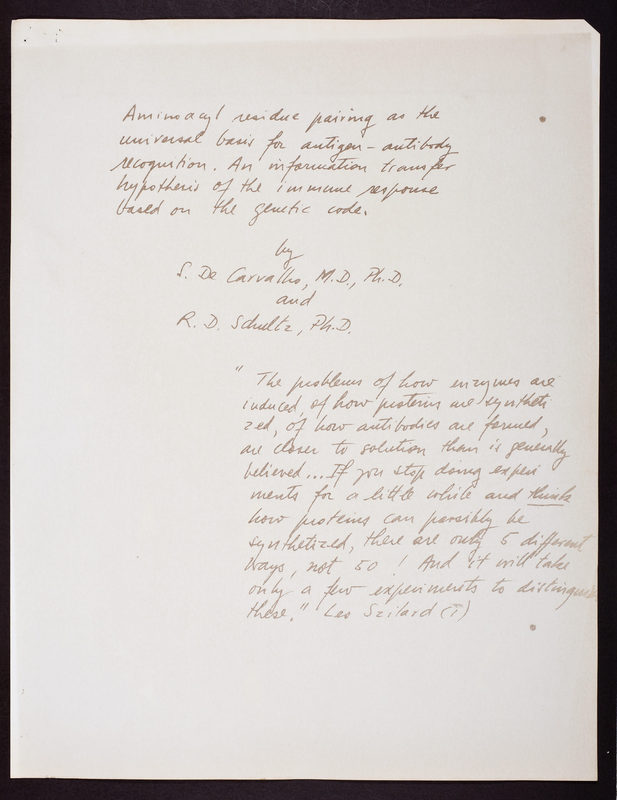 Aminoacyl residue pairing as the
universal basis for antigen - antibody
recognition. An information transfer
hypothesis of the immune response
based on the genetic code.
by
S. De Carvalho, M.D., Ph.D.
and
R. D. Schultz, Ph.D.
" The problems of how enzymes are
induced, of how proteins are syntheti
zed, of how antibodies are formed,
are closer to solution than is generally
believed... If you stop doing experi
ments for a little while and think
how proteins can possibly be
synthetized, there are only 5 different
ways, not 50 ! And it will take
only a few experiments to distinguish
these." Leo Szilard (1)